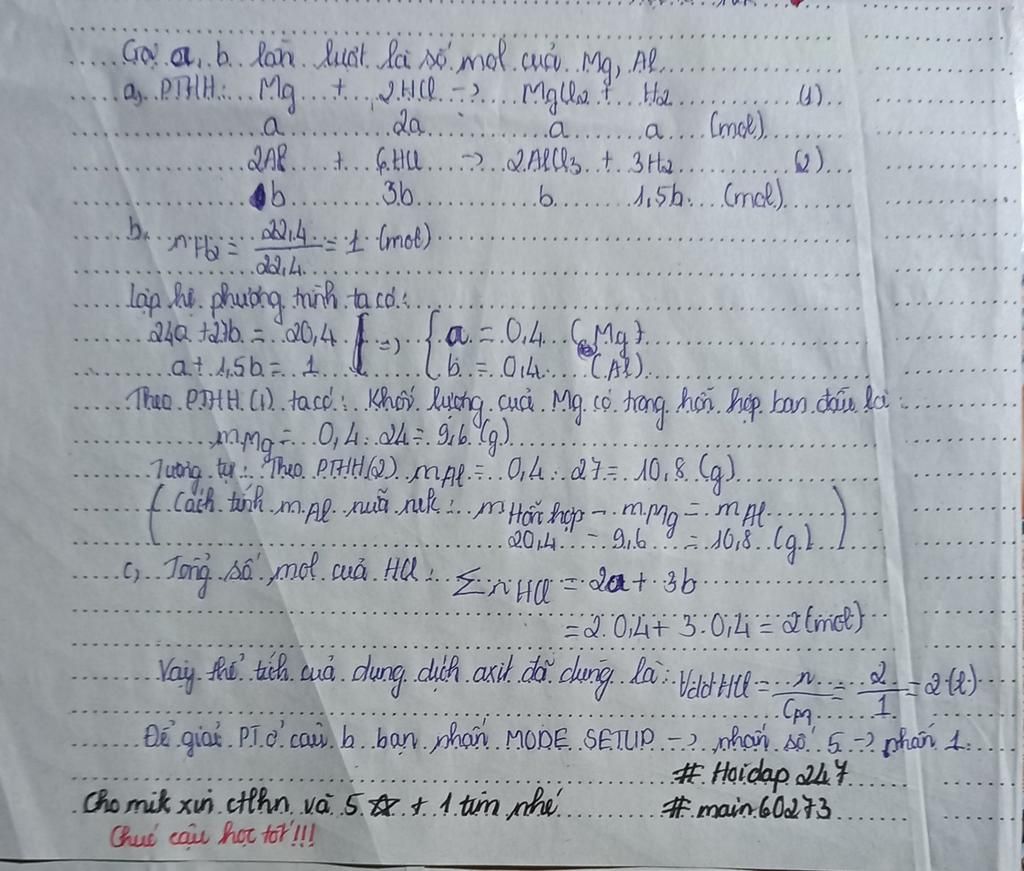 Gọi a, b lần lượt là số mol của Mg, Al
a, PTHH: Mg + 2HCl -> MgCl2 + H2 (1)
a 2a a a (mol)
2Al + 6HCl -> 2AlCl3 + 3H2 (2)
b 3b b 1,5b (mol)
b, nH2 = 22,4/22,4 = 1 (mol)
Lập hệ phương trình ta có:
24a + 27b = 20,4 } => { a = 0,4 (Mg)
a + 1,5b = 1 b = 0,4 (Al)
Theo PTHH (1) ta có: Khối lượng của Mg có trong hỗn hợp ban đầu là:
mMg = 0,4 . 24 = 9,6 (g)
Tương tự: Theo PTHH(2) mAl = 0,4 . 27 = 10,8 (g)
( Cách tính mAl nữa nek: mHỗn hợp - mMg = mAl
20,4 - 9,6 = 10,8 (g) )
c, Tổng số mol của HCl: ΣnHCl = 2a + 3b
= 2.0,4 + 3.0,4 = 2 (mol)
Vậy thể tích của dung dịch axit đã dùng là: VddHCl = n/CM = 2/1 = 2 (l)
Để giải PT ở câu b bạn nhấn MODE SETUP -> nhấn số 5 -> nhấn 1.
# Hoidap 247
Cho mik xin ctlhn và 5 ☆ + 1 tim nhé # main 60273
Chúc cậu học tốt !!!